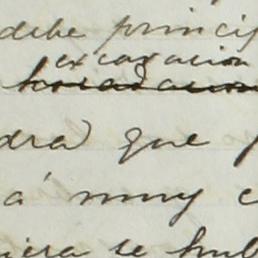 debe princip
excavacion
dra que
á muy c
iera se hub